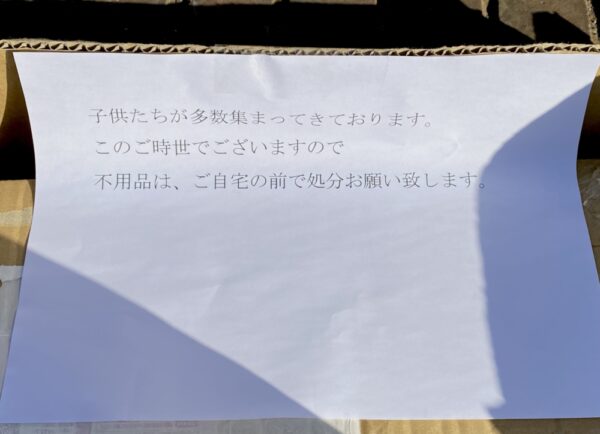 子供たちが多数集まってきております。
このご時世でございますので
不用品は、ご自宅の前で処分お願い致します。